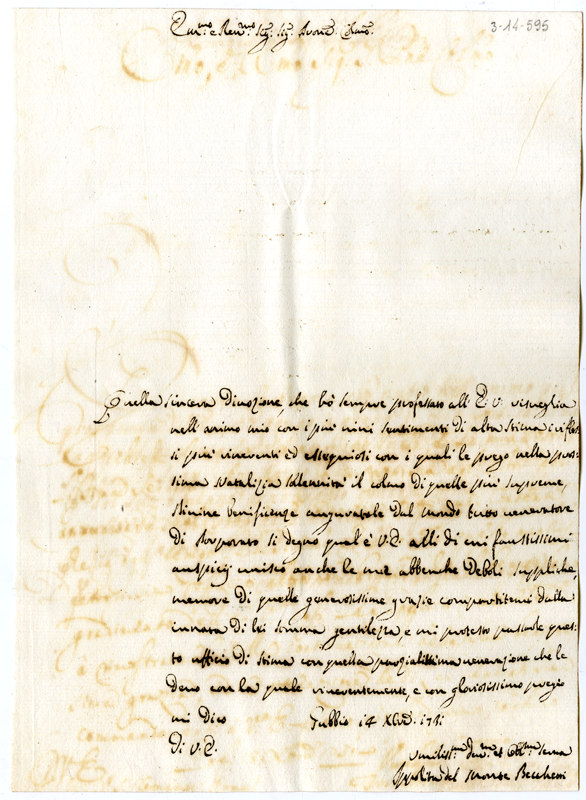 3-14-595
Em.mo e Rev.mo Sig. Sig. Pron.e Col.mo
Quella sincera Divozione, che hò sempre professato all' E. V. risveglia
nell' animo mio con i più vivi sentimenti di alta stima i rifles-
si più riverenti ed ossequiosi con i quali le prego nella pros-
sima Natalizia Solennità il colmo di quelle più supreme,
Divine beneficenze auguratele dal mondo tutto veneratore
Di Porporato si degno qual è V. E. alli di cui faustissimi
auspicij unisco anche le mie abbenche Deboli suppliche,
memore Di quelle generosissime grazie compartitemi dalla
innata Di lei somma gentilezza, e mi protesto passarle ques-
to ufficio Di stima con quella parzialissima venerazione che le
Devo con la quale riverentemente, e con gloriosissimo pregio
mi Dico Gubbio 14 Xbre
Di V. E.
Umiliss.mo Dev.mo et Obb.mo Serva
Ippolita del Monte Beccheri